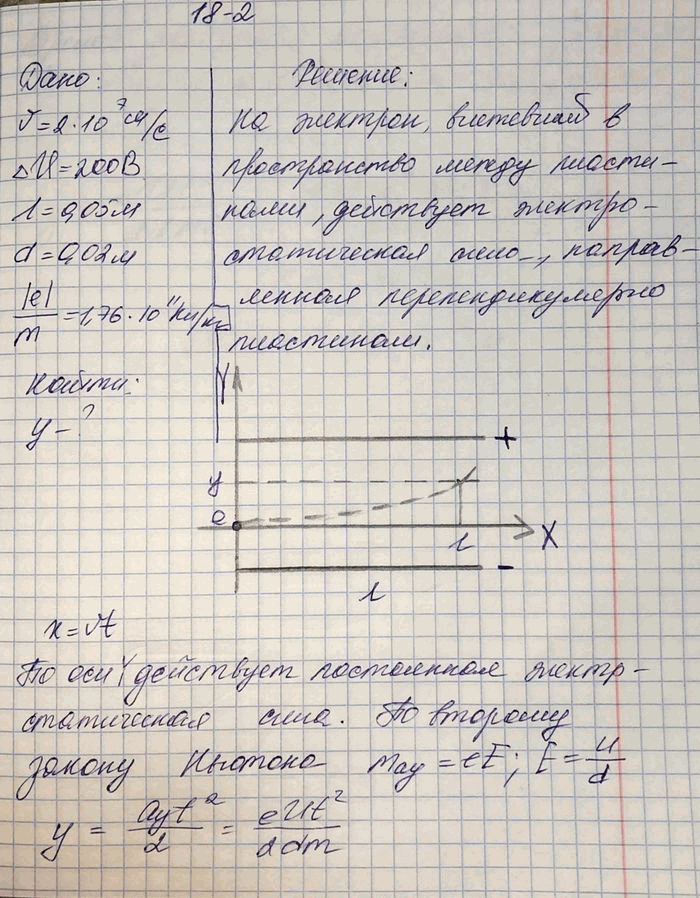 18-2
Дано:
v = 2·10⁷ м/с
ΔU = 200В
l = 0,05м
d = 0,02м
|e|/m = 1,76·10¹¹ Кл/кг
Найти:
y - ?
Решение:
На электрон, влетевший в
пространство между пласти-
нами, действует электро-
статическая сила, направ-
ленная перпендикулярно
пластинам.
Y
+
y
e
X
l
-
l
x = vt
По оси Y действует постоянная электр-
статическая сила. По второму
закону Ньютона ma_y = eE; E = U/d
y = a_yt²/2 = eUt²/2dm